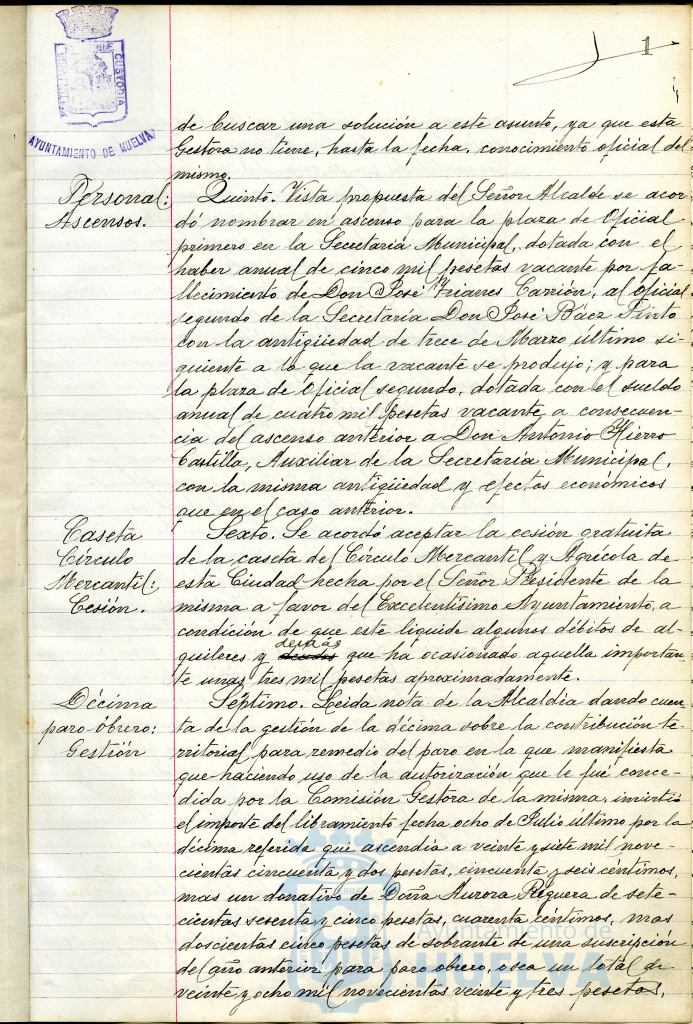 1
CUSTODIA
AYUNTAMIENTO DE HUELVA
de buscar una solución a este asunto, ya que esta
Gestora no tiene, hasta la fecha, conocimiento oficial del
mismo.
Personal:
Ascensos.
Quinto. Vista propuesta del Señor Alcalde se acor-
dó nombrar en ascenso para la plaza de Oficial
primero en la Secretaría Municipal, dotada con el
haber anual de cinco mil pesetas vacante por fa-
llecimiento de Don José Carrión, al Oficial
segundo de la Secretaría Don José Báez Pinto
con la antigüedad de trece de Marzo último si-
guiente a lo que la vacante se produjo; y para
la plaza de Oficial segundo, dotada con el sueldo
anual de cuatro mil pesetas vacante a consecuen-
cia del ascenso anterior a Don Antonio Hierro
Castilla, Auxiliar de la Secretaría Municipal,
con la misma antigüedad y efectos económicos
que en el caso anterior.
Caseta
Círculo
Mercantil:
Cesión.
Sexto. Se acordó aceptar la cesión gratuita
de la caseta del Círculo Mercantil y Agrícola de
esta Ciudad hecha por el Señor Presidente de la
misma a favor del Excelentísimo Ayuntamiento, a
condición de que este liquide algunos débitos de al-
quileres y demás que ha ocasionado aquella importan-
te unas tres mil pesetas aproximadamente.
Décima
paro obrero:
Gestión
Séptimo. Leida nota de la Alcaldía dando cuen-
ta de la gestión de la décima sobre la contribución te-
rritorial para remedio del paro en la que manifiesta
que haciendo uso de la autorización que le fué conce-
dida por la Comisión Gestora de la misma, invirtió
el importe del libramiento fecha ocho de Julio último por la
décima referida que ascendía a veinte y siete mil nove-
cientas cincuenta y dos pesetas, cincuenta y seis céntimos,
mas un donativo de Doña Aurora Requera de sete-
cientas sesenta y cinco pesetas, cuarenta céntimos, mas
doscientas cinco pesetas de sobrante de una suscripción
del año anterior para paro obrero, o sea un total de
veinte y ocho mil novecientas veinte y tres pesetas,
Ayuntamiento de
HUELVA